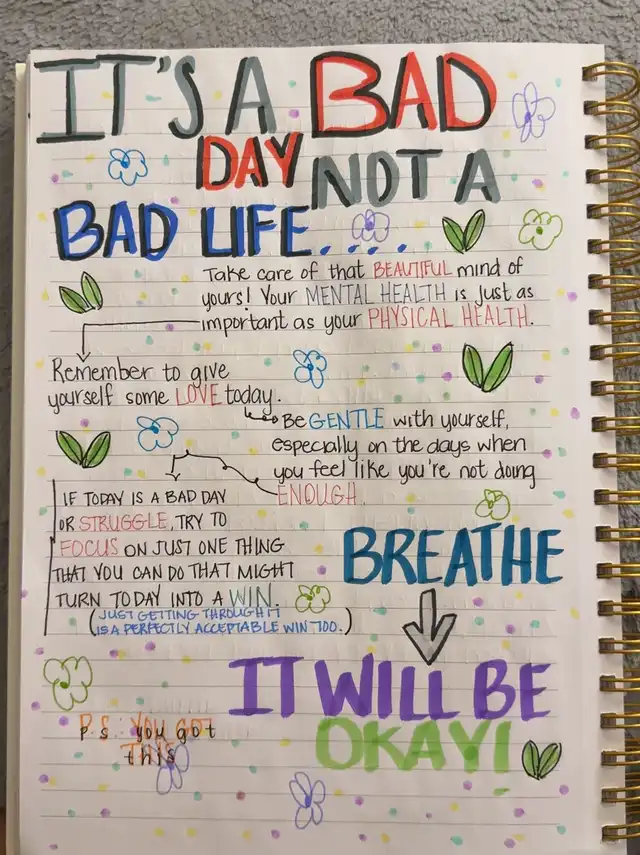 IT'S A BAD
DAY NOT A
BAD LIFE....
Take care of that BEAUTIFUL mind of
yours! Your MENTAL HEALTH is just as
important as your PHYSICAL HEALTH.
Remember to give
yourself some LOVE today.
Be GENTLE with yourself,
especially on the days when
you feel like you're not doing
ENOUGH.
IF TODAY IS A BAD DAY
OR STRUGGLE, TRY TO
FOCUS ON JUST ONE THING
THAT YOU CAN DO THAT MIGHT
TURN TODAY INTO A WIN.
(JUST GETTING THROUGH IT
IS A PERFECTLY ACCEPTABLE WIN TOO.)
BREATHE
IT WILL BE
OKAY!
P.S. you got
this